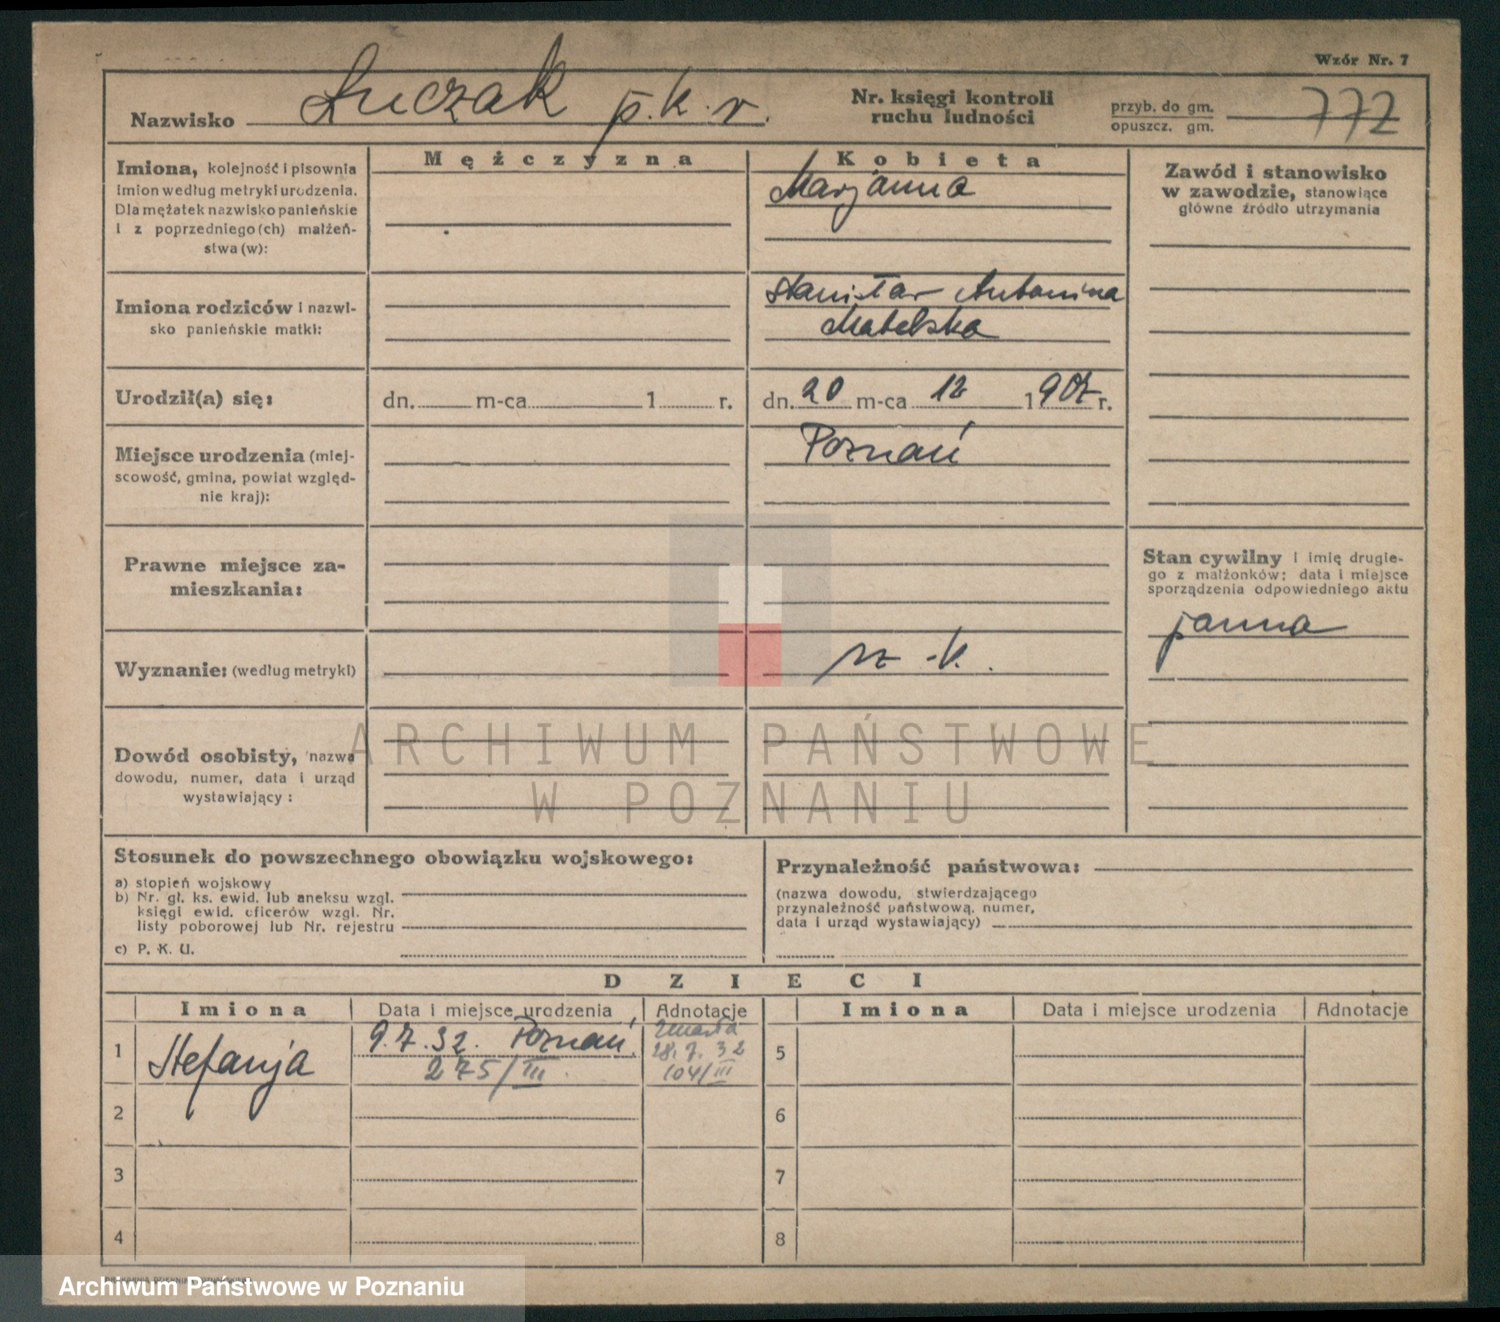 Wzór Nr. 7
Nazwisko Łuczak p.k.v.
Nr. księgi kontroli ruchu ludności
przyb. do gm.
opuszcz. gm.
772
Mężczyzna
Kobieta
Imiona, kolejność i pisownia
imion według metryki urodzenia.
Dla mężatek nazwisko panieńskie
i z poprzedniego (ch) małżeń-
stwa (w):
Marjanna
Zawód i stanowisko
w zawodzie, stanowiące
główne źródło utrzymania
Imiona rodziców i nazwi-
sko panieńskie matki:
Stanisław Antonina
Matelska
Urodził(a) się:
dn. m-ca 1 r.
dn. 20 m-ca 12 1907 r.
Miejsce urodzenia (miej-
scowość, gmina, powiat względ-
nie kraj):
Poznań
Prawne miejsce za-
mieszkania:
Stan cywilny i imię drugie-
go z małżonków; data i miejsce
sporządzenia odpowiedniego aktu
panna
Wyznanie: (według metryki)
rz.-k.
Dowód osobisty, nazwa
dowodu, numer, data i urząd
wystawiający:
ARCHIWUM PAŃSTWOWE
W POZNANIU
Stosunek do powszechnego obowiązku wojskowego:
a) stopień wojskowy
b) Nr. gł. ks. ewid. lub aneksu wzgl.
księgi ewid. oficerów wzgl. Nr.
listy poborowej lub Nr. rejestru
c) P. K. U.
Przynależność państwowa:
(nazwa dowodu, stwierdzającego
przynależność państwową, numer,
data i urząd wystawiający)
DZIECI
Imiona Data i miejsce urodzenia Adnotacje Imiona Data i miejsce urodzenia Adnotacje
1 Stefanja 9.7.32. Poznań, 275/III. zmarła 28.7.32 104/III 5
2 6
3 7
4 8
Archiwum Państwowe w Poznaniu